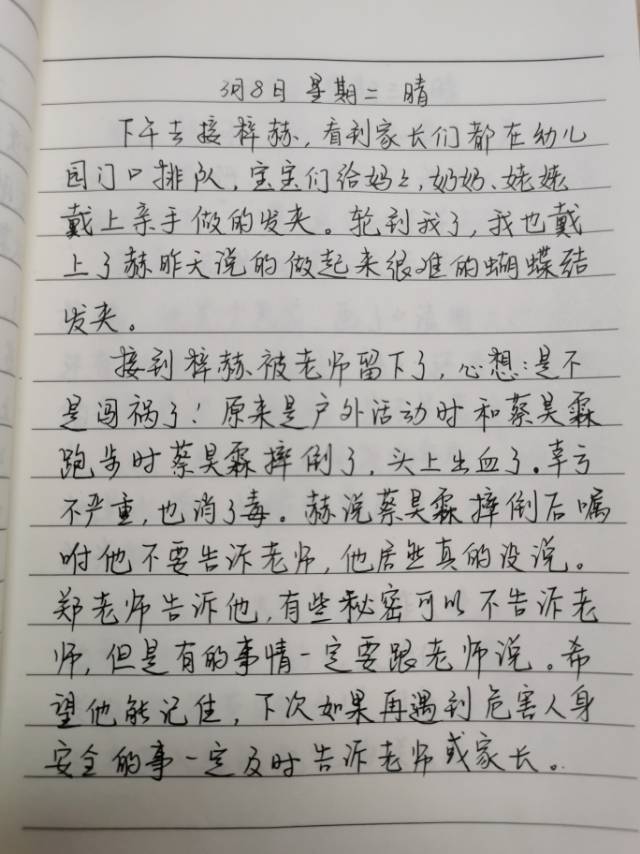 3月8日 星期二 晴
下午去接梓赫，看到家长们都在幼儿
园门口排队，宝宝们给妈妈，奶奶、姥姥
戴上亲手做的发夹。轮到我了，我也戴
上了赫昨天说的做起来很难的蝴蝶结
发夹。
接到梓赫被老师留下了，心想：是不
是闯祸了！原来是户外活动时和蔡昊霖
跑步时蔡昊霖摔倒了，头上出血了。幸亏
不严重，也消了毒。赫说蔡昊霖摔倒后嘱
咐他不要告诉老师，他居然真的没说。
郑老师告诉他，有些秘密可以不告诉老
师，但是有的事情一定要跟老师说。希
望他能记住，下次如果再遇到危害人身
安全的事一定及时告诉老师或家长。